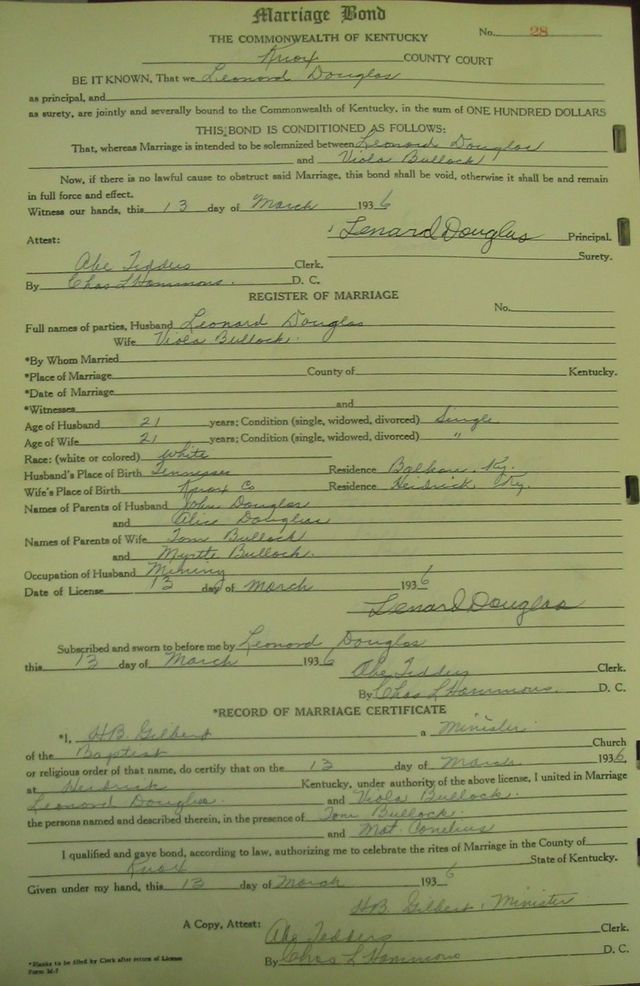 Marriage Bond
No. 28
THE COMMONWEALTH OF KENTUCKY
Knox COUNTY COURT
BE IT KNOWN, That we Leonord Douglas
as principal, and
as surety, are jointly and severally bound to the Commonwealth of Kentucky, in the sum of ONE HUNDRED DOLLARS
THIS BOND IS CONDITIONED AS FOLLOWS:
That, whereas Marriage is intended to be solemnized between Leonord Douglas
and Viola Bullock
Now, if there is no lawful cause to obstruct said Marriage, this bond shall be void, otherwise it shall be and remain
in full force and effect.
Witness our hands, this 13 day of March 1936
Lenard Douglas Principal.
Attest:
Surety.
Abe Tedders Clerk.
By Chas L Hammons. D. C.
REGISTER OF MARRIAGE
No.
Full names of parties, Husband Leonord Douglas
Wife Viola Bullock.
*By Whom Married
*Place of Marriage County of Kentucky.
*Date of Marriage
*Witnesses and
Age of Husband 21 years; Condition (single, widowed, divorced) Single
Age of Wife 21 years; Condition (single, widowed, divorced) "
Race: (white or colored) White
Husband's Place of Birth Tennessee Residence Balkan, Ky.
Wife's Place of Birth Knox Co Residence Heidrick Ky.
Names of Parents of Husband John Douglas
and Alice Douglas
Names of Parents of Wife Tom Bullock
and Myrtle Bullock.
Occupation of Husband Mining
Date of License 13 day of March 1936
Lenard Douglas
Subscribed and sworn to before me by Leonord Douglas
this 13 day of March 1936
Abe Tedders Clerk.
By Chas L Hammons. D. C.
*RECORD OF MARRIAGE CERTIFICATE
*I, H.B. Gilbert a Minister.
of the Baptist Church
or religious order of that name, do certify that on the 13 day of March 1936,
at Heidrick Kentucky, under authority of the above license, I united in Marriage
Leonord Douglas and Viola Bullock.
the persons named and described therein, in the presence of Tom Bullock.
and Mat. Conelius
I qualified and gave bond, according to law, authorizing me to celebrate the rites of Marriage in the County of
Knox State of Kentucky.
Given under my hand, this 13 day of March 1936
H.B. Gilbert, Minister
A Copy, Attest: Abe Tedders Clerk.
By Chas L Hammons D. C.
*Blanks to be filled by Clerk after return of License
Form M-7